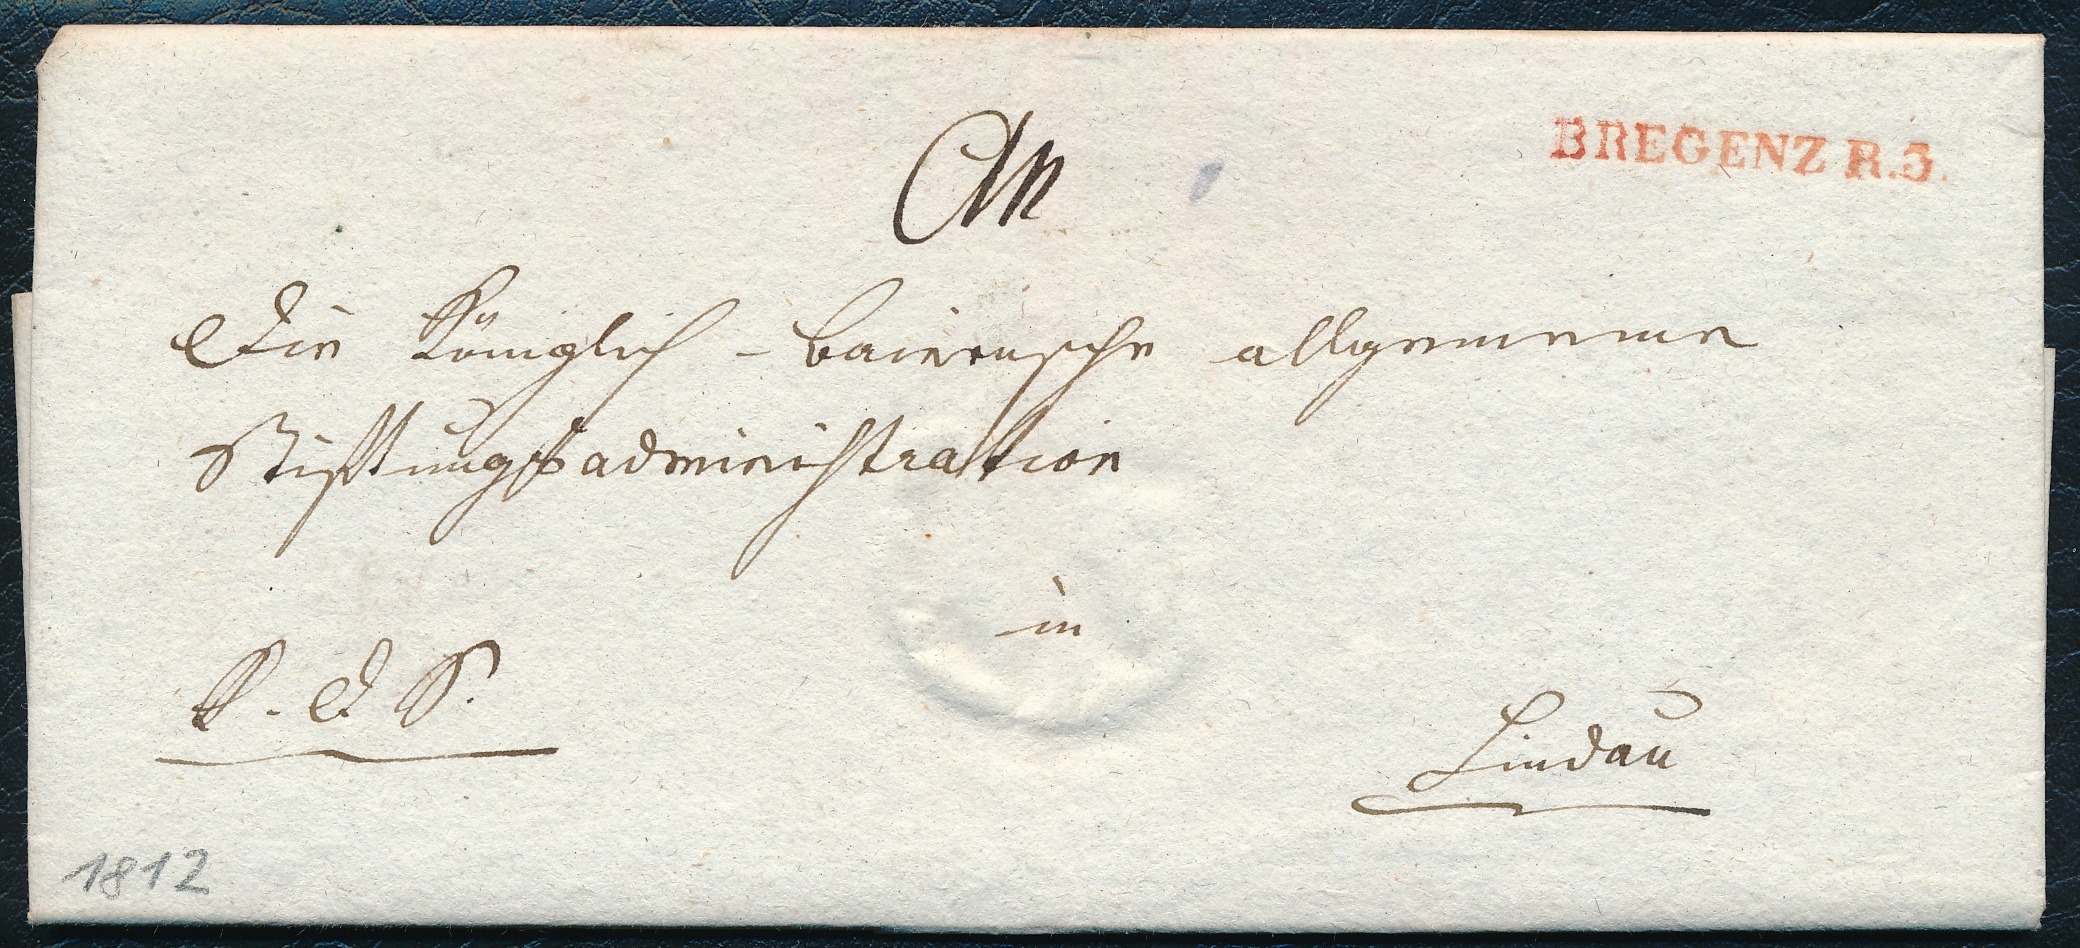 An
BREGENZ R.3.
Die Königlich - baierische allgemeine
Stiftungs administration
in
K. D. S.
Lindau
1812